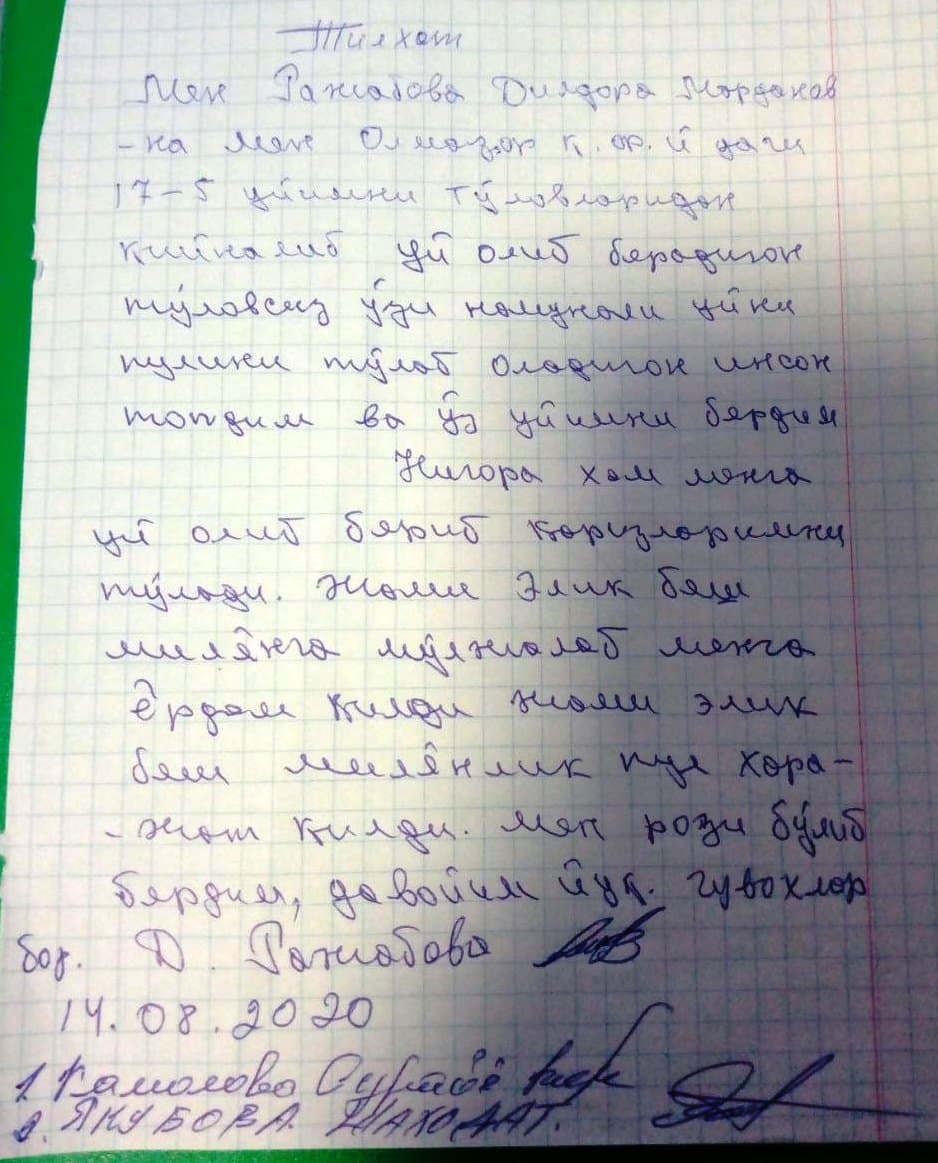 Тилхат
Мен Ражабова Дилдора Марданов
-на мен Олмазор қ.ф.й даги
17-5 уйимни тўловларидан
кийналиб уй олиб берадиган
тўловсиз ўзи намунали уйни
пулини тўлаб оладиган инсон
топдим ва ўз уйимни бердим
Нигора хам менга
уй олиб бериб қарзларимни
тўлади. Жами элик беш
милёнга мўлжалаб менга
Ёрдам қилди жами элик
беш милёнлик пул хара-
-жат қилди. Мен рози бўлиб
бердим, давойим йуқ. гувохлар
бор. Д. Ражабова
14.08.2020
1. Камолова Сураё
2. ЯКУБОВА ШАХОДАТ.